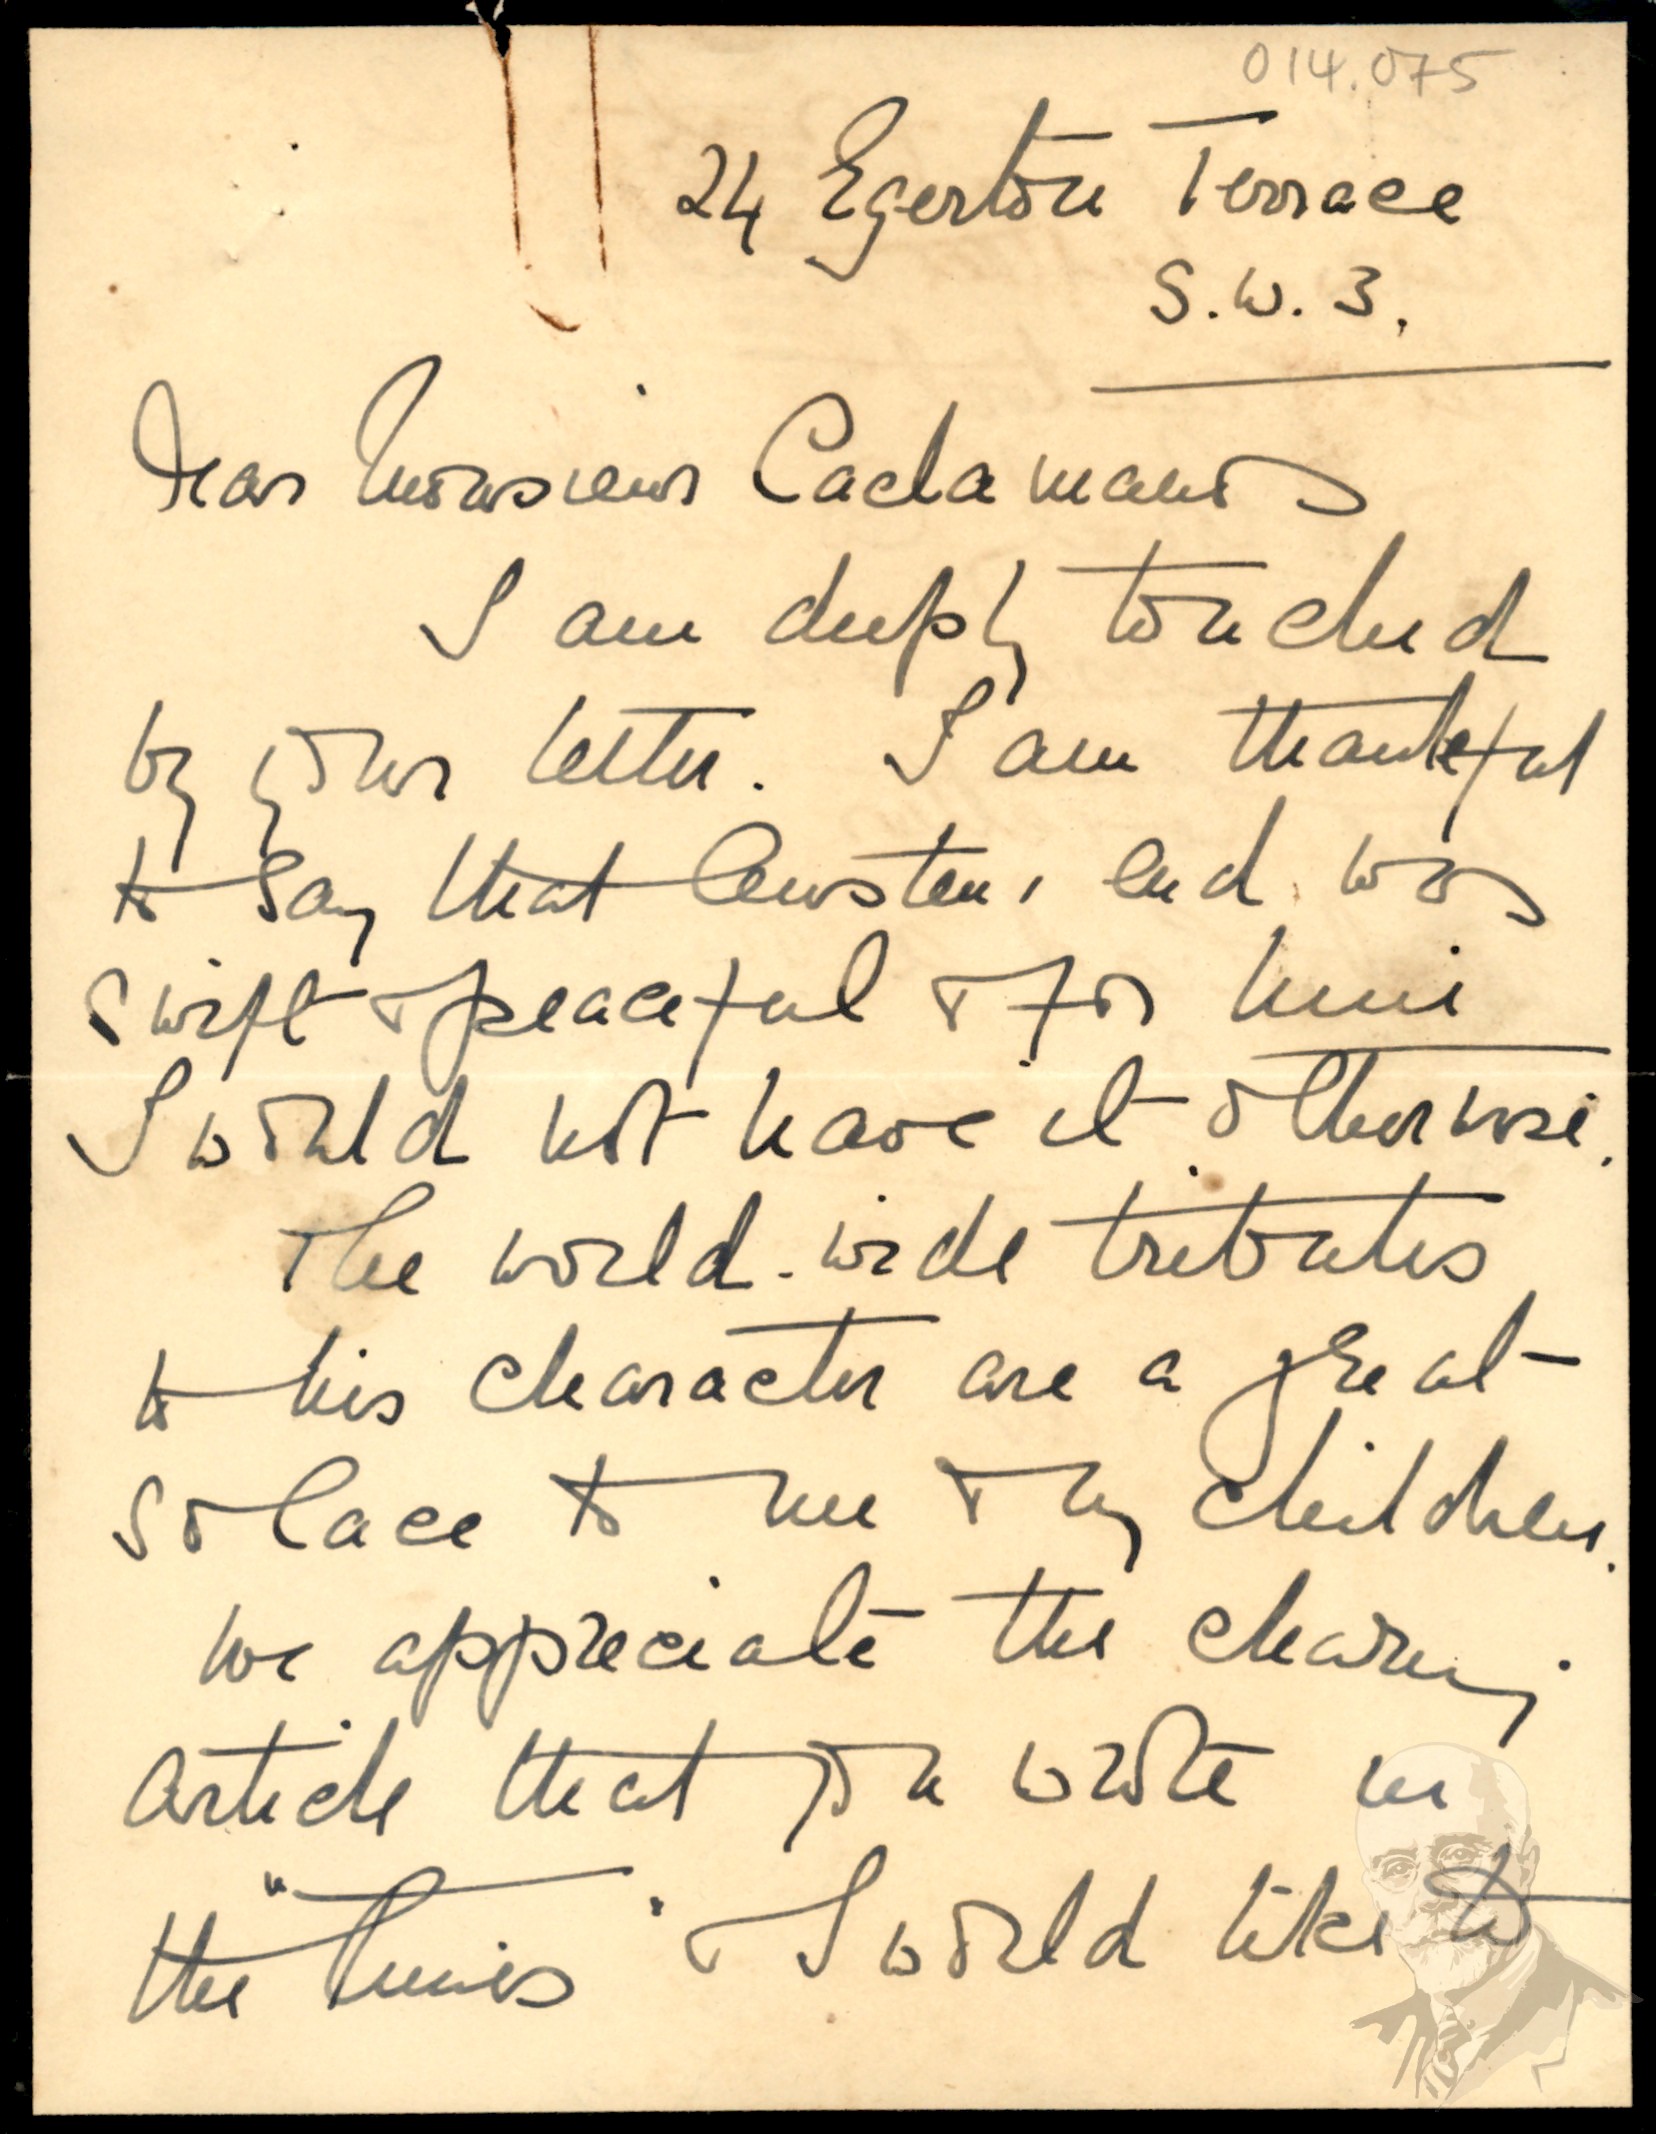 014.075
24 Egerton Terrace
S.W.3.
Dear Monsieur Caclamanos
I am deeply touched
by your letter. I am thankful
to say that Austen's end was
swift & peaceful & for him
I would not have it otherwise.
The world-wide tributes
to his character are a great
solace to me & my children.
We appreciate the charming
article that you wrote in
the "Times" & I would like to